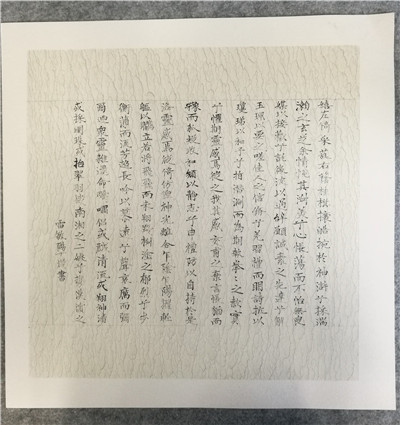 嬉左倚采旄右蔭桂旗攘皓腕於神滸兮採湍
瀨之玄芝余情悅其淑美兮心振蕩而不怡無良
媒以接歡兮託微波以通辭願誠素之先達兮解
玉珮以要之嗟佳人之信脩兮羌習禮而明詩抗以
瓊珶以和予兮指潛淵而為期執拳〻之款實
兮懼斯靈之我欺感交甫之棄言悵猶而
豫而狐疑收和顏以靜志兮申禮防以自持於是
洛靈感焉徙倚彷徨神光離合乍陰乍陽擢輕
軀以鶴立若將飛而未翔踐椒塗之郁烈兮步
衡薄而流芳超長吟以慕遠兮聲哀厲而彌
爾迺衆靈雜沓命疇嘯侶或戲清流或翔神渚
或採明珠或拾翠羽從南湘之二姚兮攜漢濱之
書